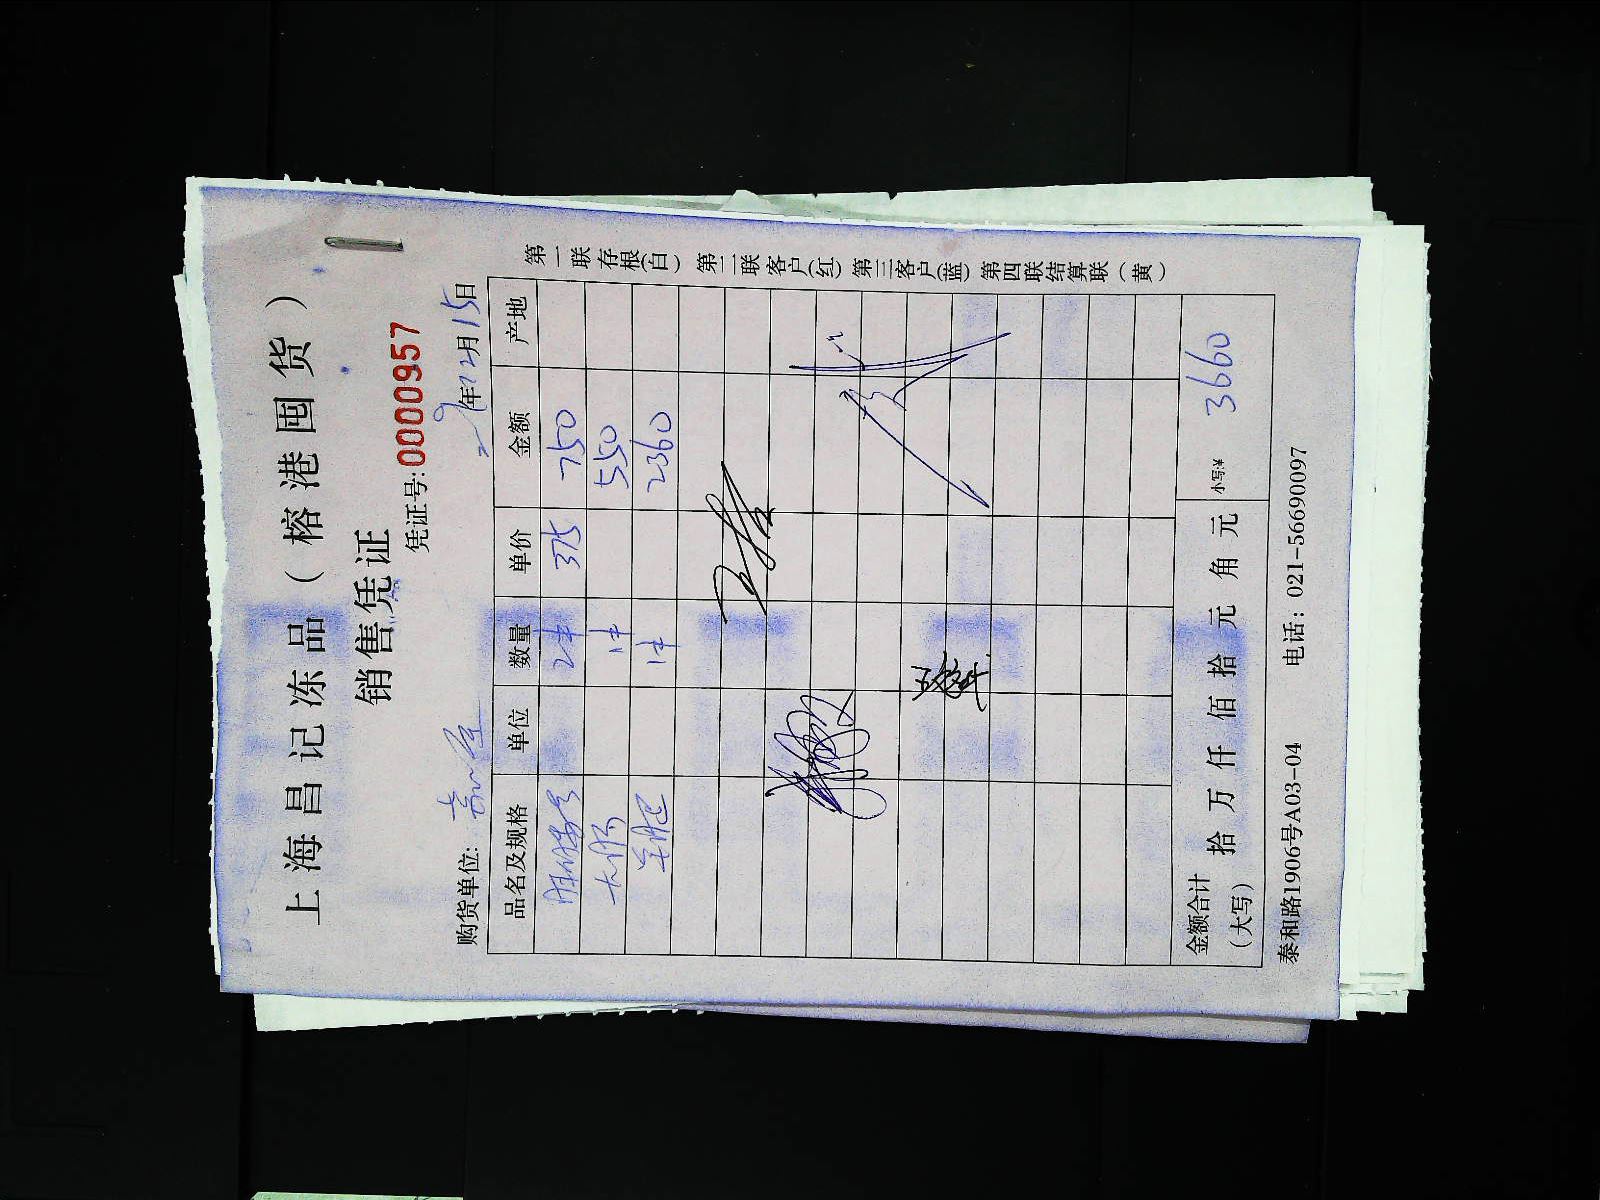 上海昌记冻品（榕港囤货）
销售凭证
凭证号:0000957
购货单位: 年12月15日
品名及规格 单位 数量 单价 金额 产地
2件 375 750
大 1件 550
1件 2360
金额合计（大写） 拾 万 仟 佰 拾 元 角 元 小写:¥ 3660
泰和路1906号A03-04 电话：021-56690097
第一联存根(白) 第二联客户(红) 第三客户(蓝) 第四联结算联（黄）